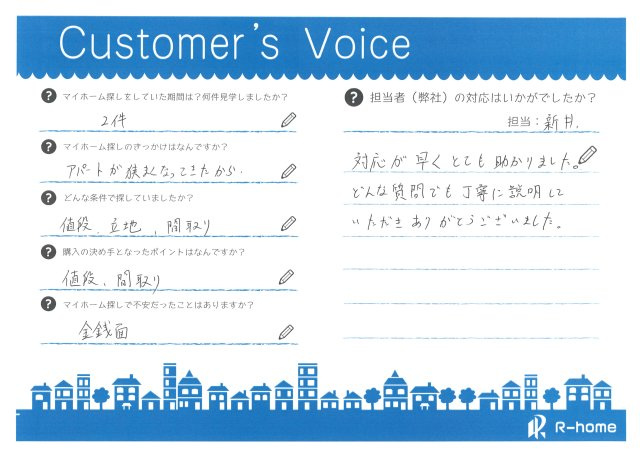 Customer's Voice
? マイホーム探しをしていた期間は?何件見学しましたか?
2件
? マイホーム探しのきっかけはなんですか?
アパートが狭くなってきたから.
? どんな条件で探していましたか?
値段、立地、間取り
? 購入の決め手となったポイントはなんですか?
値段、間取り
? マイホーム探しで不安だったことはありますか?
金銭面
? 担当者(弊社)の対応はいかがでしたか?
担当:新井.
対応が早くとても助かりました。
どんな質問でも丁寧に説明して
いただきありがとうございました。
R-home